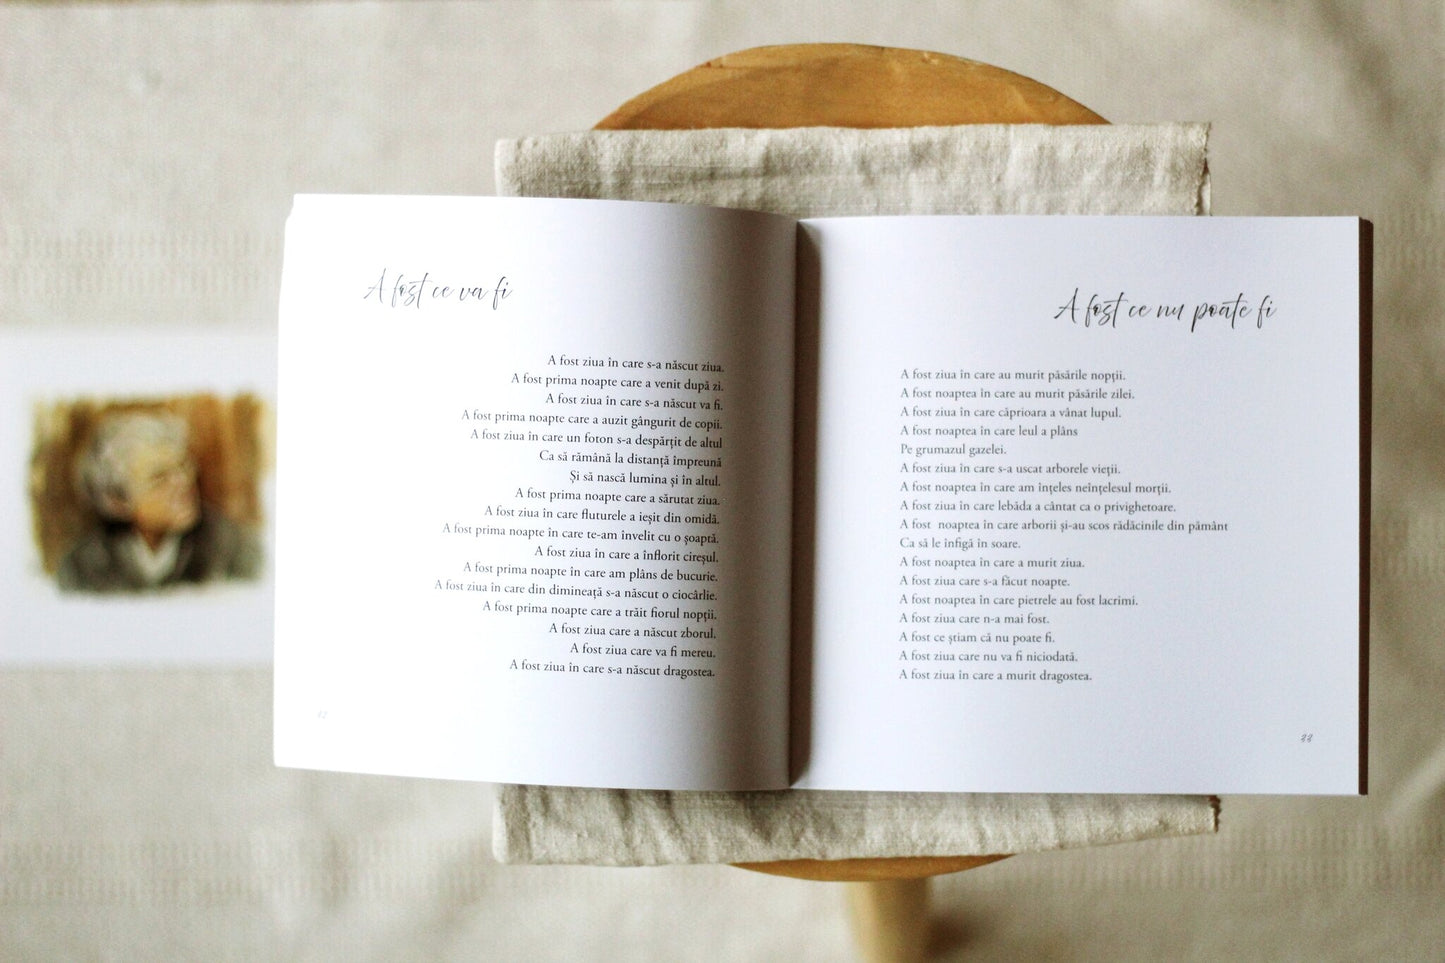 A fost ce va fi
A fost ziua în care s-a născut ziua.
A fost prima noapte care a venit după zi.
A fost ziua în care s-a născut va fi.
A fost prima noapte care a auzit gângurit de copii.
A fost ziua în care un foton s-a despărțit de altul
Ca să rămână la distanță împreună
Și să nască lumina și în altul.
A fost prima noapte care a sărutat ziua.
A fost ziua în care fluturele a ieșit din omidă.
A fost prima noapte în care te-am învelit cu o șoaptă.
A fost ziua în care a înflorit cireșul.
A fost prima noapte în care am plâns de bucurie.
A fost ziua în care din dimineață s-a născut o ciocârlie.
A fost prima noapte care a trăit fiorul nopții.
A fost ziua care a născut zborul.
A fost ziua care va fi mereu.
A fost ziua în care s-a născut dragostea.
A fost ce nu poate fi
A fost ziua în care au murit păsările nopții.
A fost noaptea în care au murit păsările zilei.
A fost ziua în care căprioara a vânat lupul.
A fost noaptea în care leul a plâns
Pe grumazul gazelei.
A fost ziua în care s-a uscat arborele vieții.
A fost noaptea în care am înțeles neînțelesul morții.
A fost ziua în care lebăda a cântat ca o privighetoare.
A fost  noaptea în care arborii și-au scos rădăcinile din pământ
Ca să le înfigă în soare.
A fost noaptea în care a murit ziua.
A fost ziua care s-a făcut noapte.
A fost noaptea în care pietrele au fost lacrimi.
A fost ziua care n-a mai fost.
A fost ce știam că nu poate fi.
A fost ziua care nu va fi niciodată.
A fost ziua în care a murit dragostea.